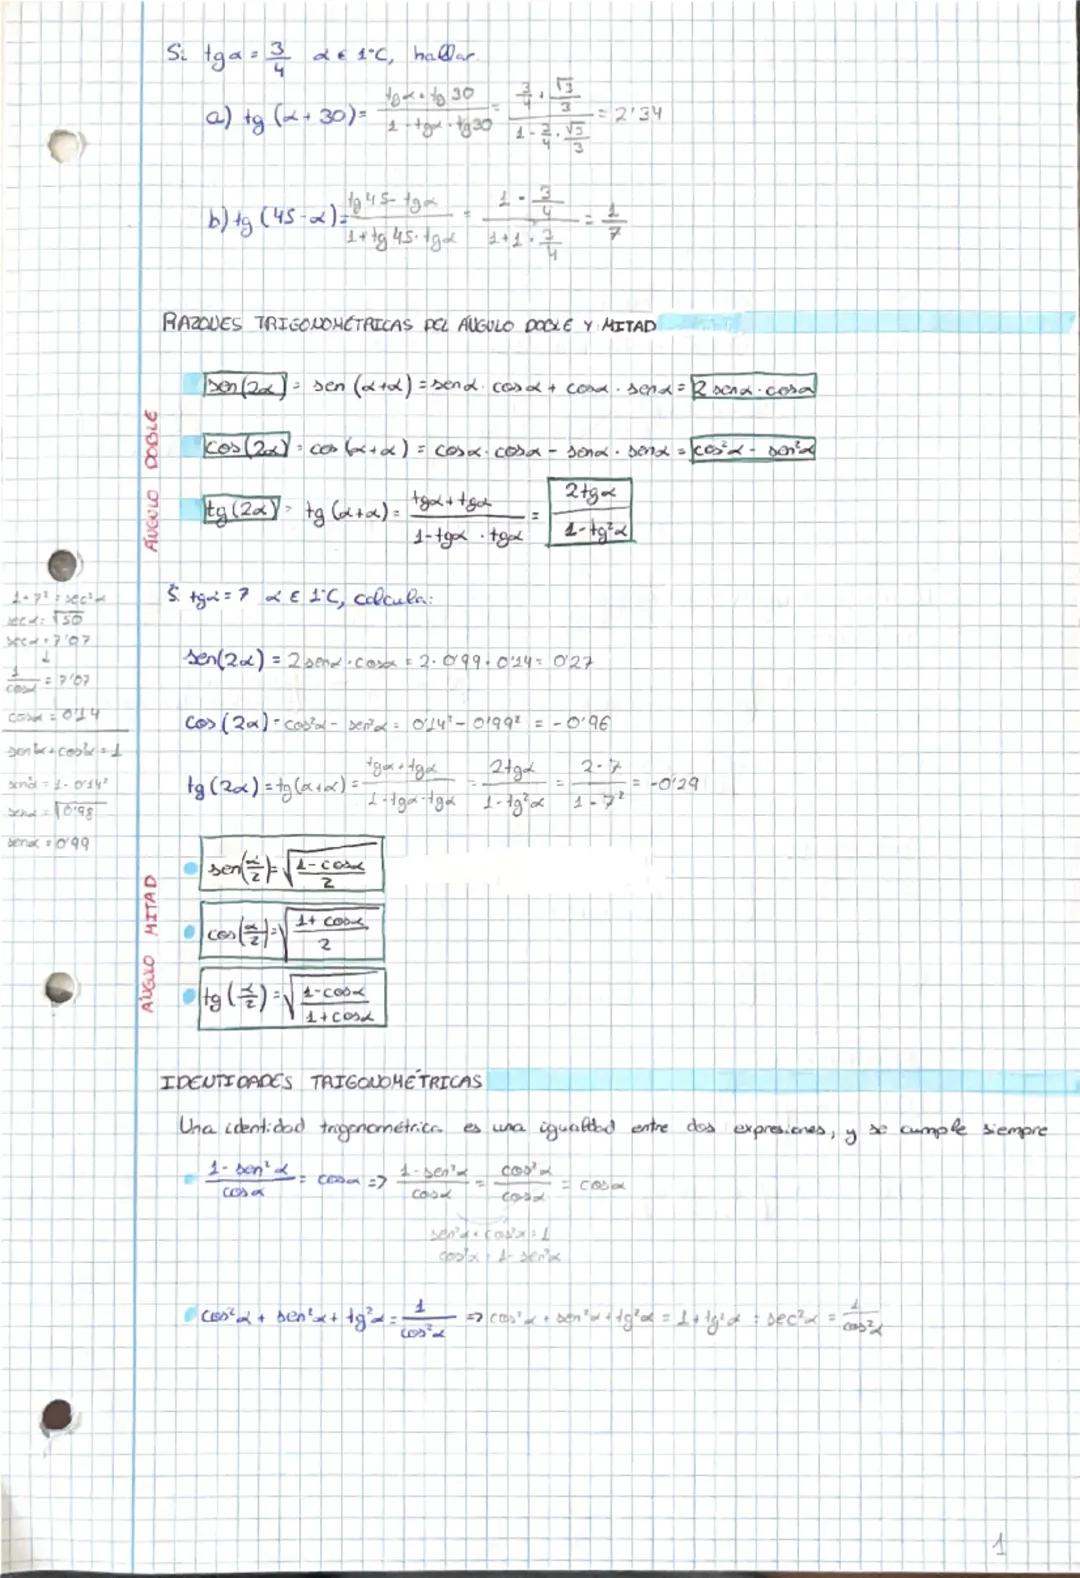 Si tgα = 3/4 α ∈ 1ºC, hallar
a) tg (α + 30) = (tgα + tg 30)/(1 - tgα · tg30) = (3/4 + √3/3)/(1 - 3/4 · √3/3) = 2'34
b) tg (45 - α) = (tg 45 - tgα)/(1 + tg 45 · tgα) = (1 - 3/4)/(1 + 1 · 3/4) = 1/7
RAZONES TRIGONOMÉTRICAS DEL ÁNGULO DOBLE Y MITAD
ÁNGULO DOBLE
sen(2α) = sen (α+α) = senα · cosα + cosα · senα = 2 senα · cosα
cos(2α) = cos (α+α) = cosα · cosα - senα · senα = cos²α - sen²α
tg(2α) = tg (α+α) = (tgα + tgα)/(1 - tgα · tgα) = 2tgα/(1 - tg²α)
Si tgα = 7 α ∈ 1ºC, calcula:
1 + 7² = sec²α
secα = √50
secα = 7'07
↓
1/cosα = 7'07
cosα = 0'14
sen²α + cos²α = 1
sen²α = 1 - 0'14²
senα = √0'98
senα = 0'99
sen(2α) = 2 senα · cosα = 2 · 0'99 · 0'14 = 0'27
cos (2α) = cos²α - sen²α = 0'14² - 0'99² = -0'96
tg (2α) = tg (α+α) = (tgα + tgα)/(1 - tgα · tgα) = 2tgα/(1 - tg²α) = (2 · 7)/(1 - 7²) = -0'29
ÁNGULO MITAD
sen(α/2) = √((1 - cosα)/2)
cos(α/2) = √((1 + cosα)/2)
tg(α/2) = √((1 - cosα)/(1 + cosα))
IDENTIDADES TRIGONOMÉTRICAS
Una identidad trigonométrica es una igualdad entre dos expresiones, y se cumple siempre
(1 - sen²α)/cosα = cosα => (1 - sen²α)/cosα = cos²α/cosα = cosα
sen²α + cos²α = 1
cos²α = 1 - sen²α
cos²α + sen²α + tg²α = 1/cos²α => cos²α + sen²α + tg²α = 1 + tg²α = sec²α = 1/cos²α
1